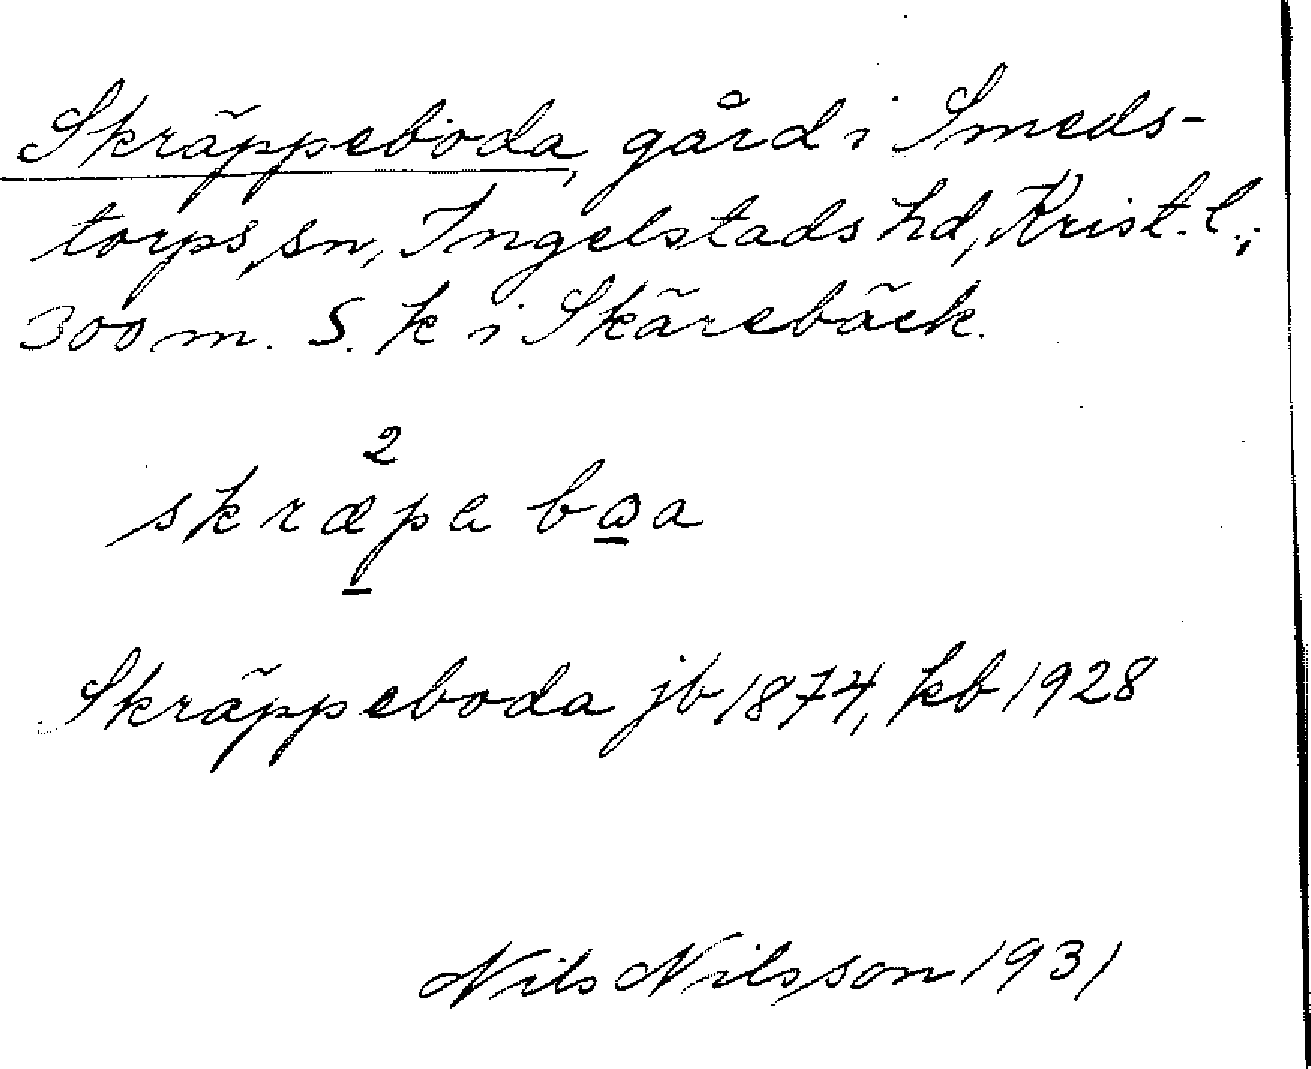 Skräppeboda, gård i Smeds-
torps sn, Ingelstads hd, Krist. l.;
300 m. S. k i Skärebäck.
2
skræpa bɷa
Skräppeboda jb 1874, kb 1928
Nils Nilsson 1931